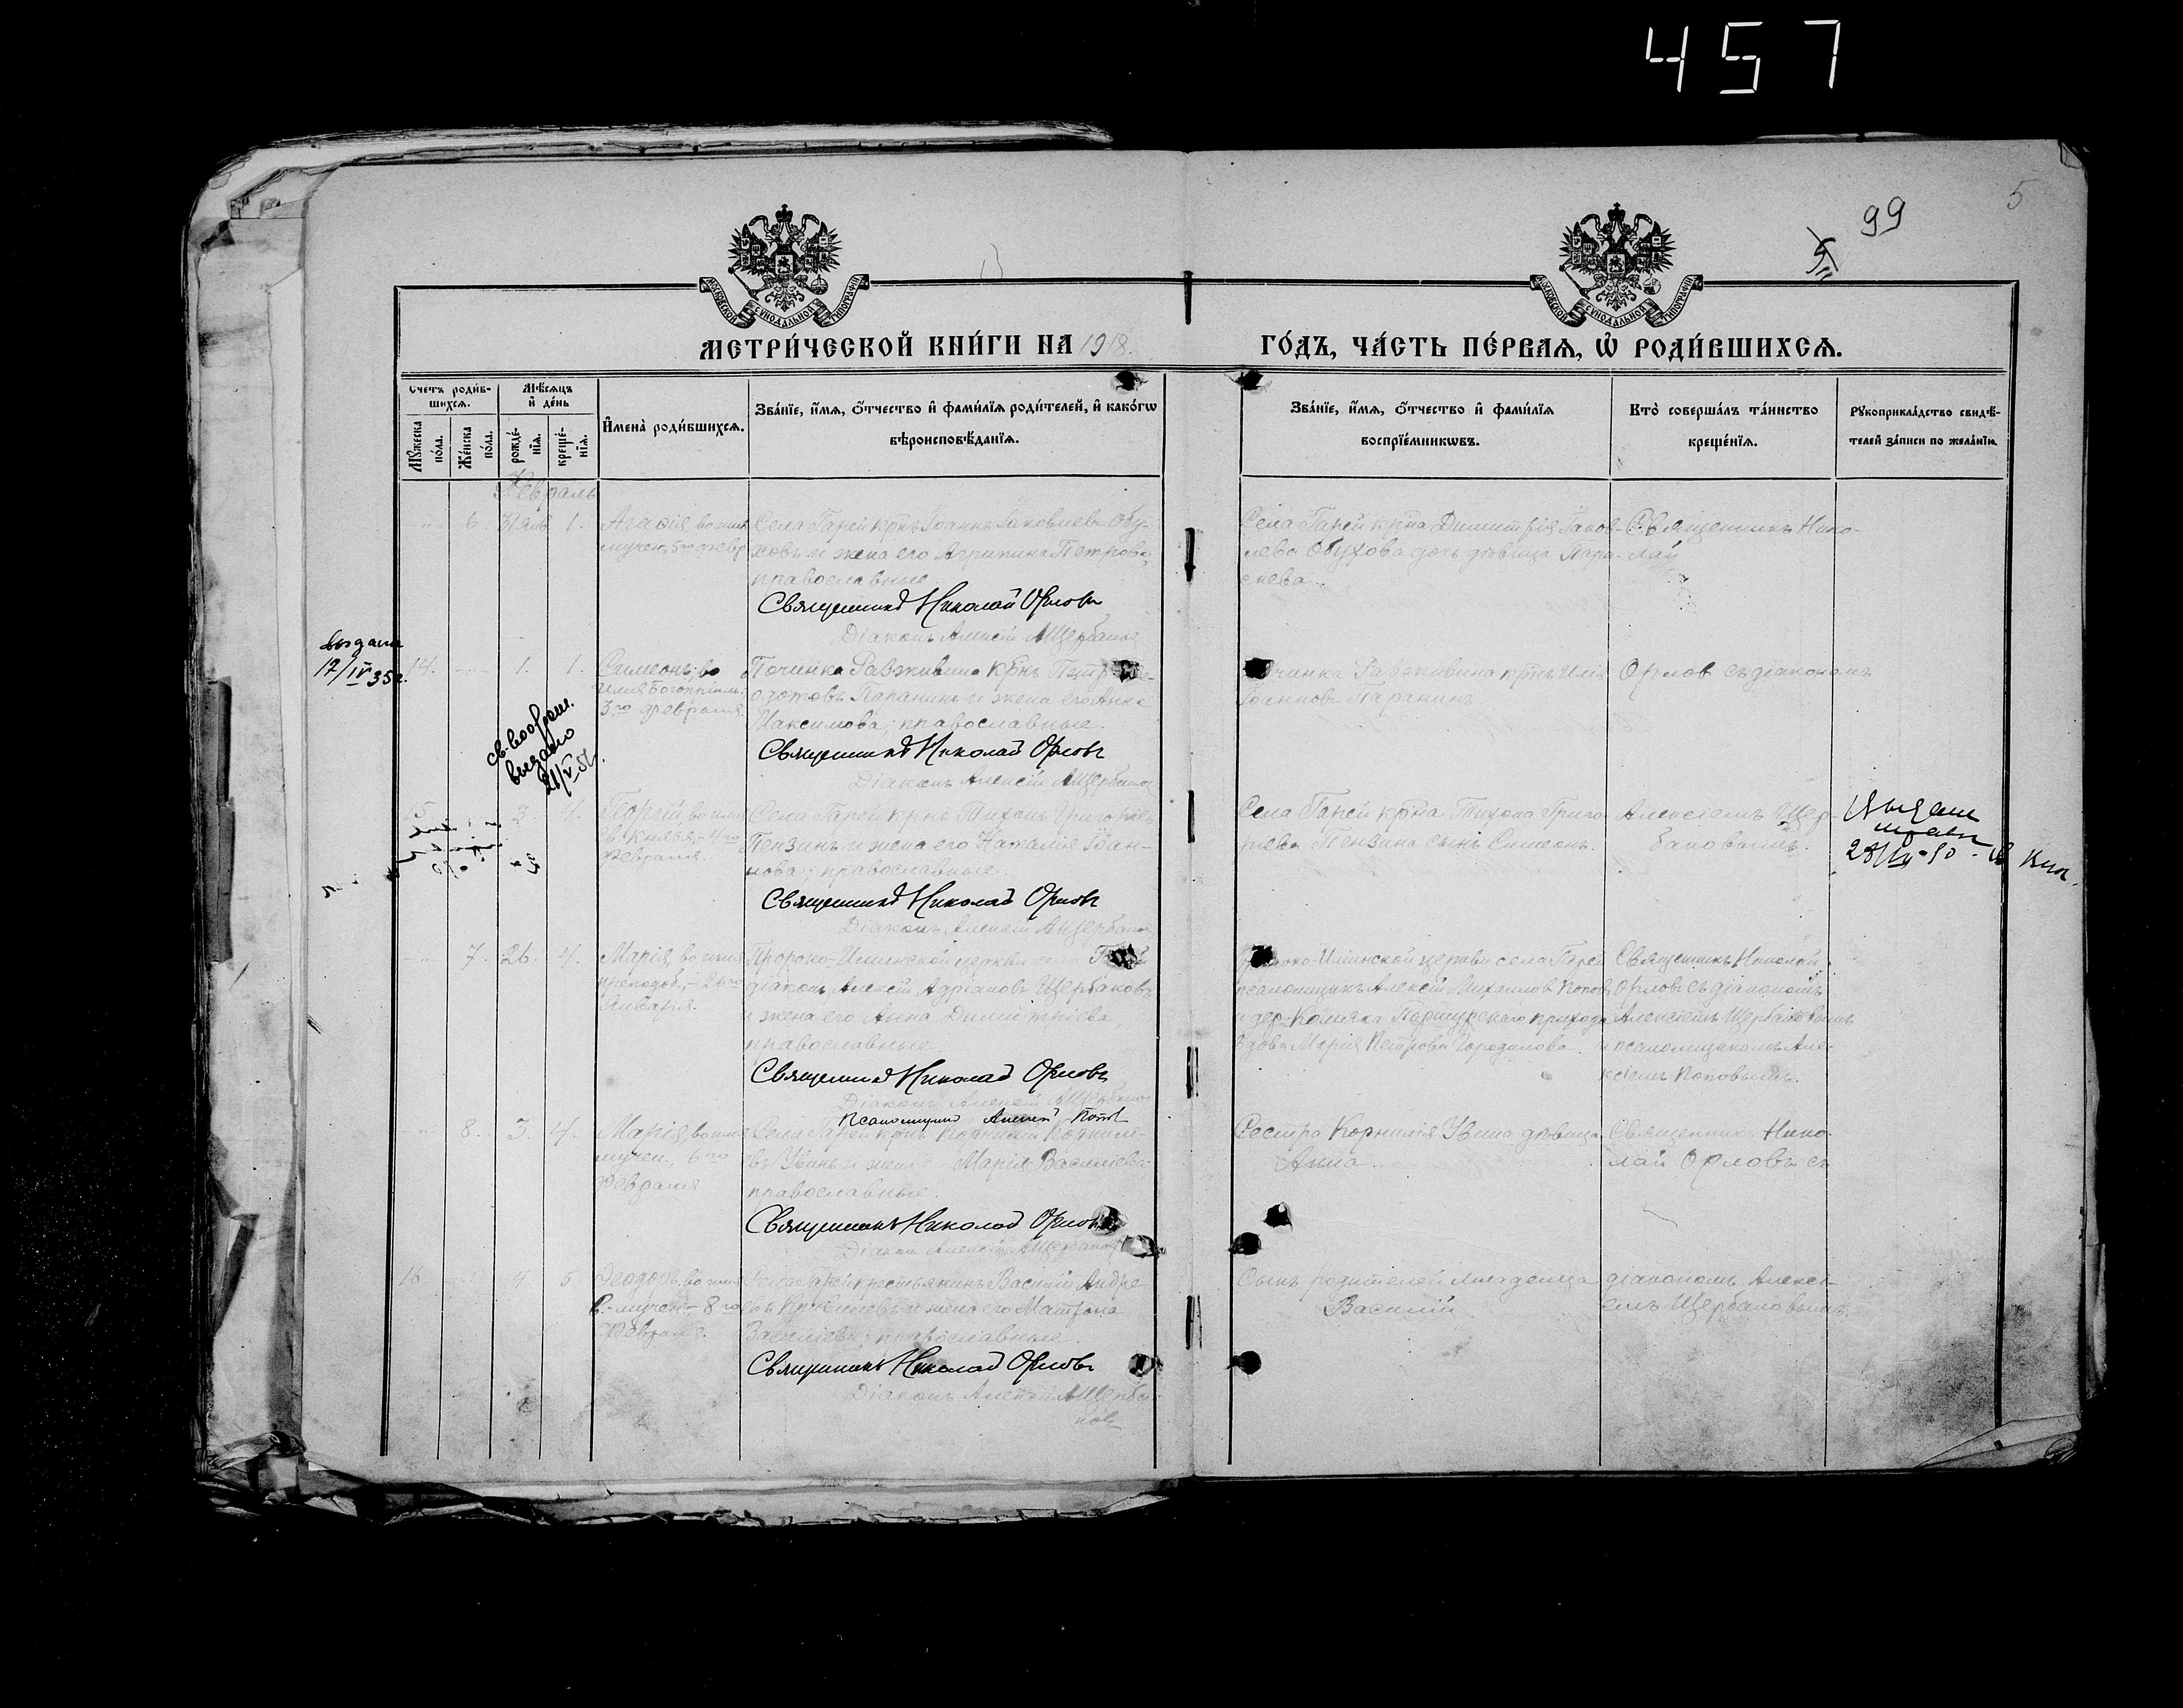 457
5
99
МОСКОВСКОЙ СѴНОДАЛЬНОЙ ТИПОГРАФІИ
МОСКОВСКОЙ СѴНОДАЛЬНОЙ ТИПОГРАФІИ
МЕТРИ́ЧЕСКОЙ КНИ́ГИ НА 1918.
ГО́ДЪ, ЧА́СТЬ ПЕ́РВАѦ, Ѡ҆ РОДИ́ВШИХСѦ.
Счетъ роди́в-
шихсѧ.
Мѣ́сѧцъ
и҆ де́нь
Мꙋ́жеска
по́ла.
Же́нска
по́ла.
рожде́-
нїѧ.
креще́-
нїѧ.
И҆мена̀ роди́вшихсѧ.
Зва́нїе, и҆́мѧ, ѻ҆́тчество и҆ фами́лїѧ роди́телей, и҆ како́гѡ
вѣроисповѣ́данїѧ.
Зва́нїе, и҆́мѧ, ѻ҆́тчество и҆ фами́лїѧ
воспрїе́мникѡвъ.
Кто̀ соверша́лъ та́инство
креще́нїѧ.
Рꙋкоприкла́дство свидѣ́-
телей за́писи по жела́нїю.
Февраль
6. 31 янв 1.
Агаѳія, во имя
мучен. 5го февр
Села Гарей крнъ Іоаннъ Іаковлевъ Обу-
ховъ и жена его Агрипина Петрова,
православные
Священникъ Николай Орловъ
Діаконъ Алексій А Щербаковъ
Села Гарей крна Димитрія Іаков-
лева Обухова дочь дѣвица Пара-
скева.
Священникъ Нико-
лай
выдана
12/IV 35г.
14. 1. 1.
Симеонъ, во
имя Богопріим.
3го февраля
Починка крнъ
одотовъ Паранинъ и жена его Анна
Максимова; православные.
Священникъ Николай Орловъ
Діаконъ Алексій А Щербаковъ
Іоанновъ Паранинъ
Орлов съ діакономъ
выдано
21/V 51г.
15 3. 4.
Георгій во имя
св. князя, - 4го
Февраля.
Села Гарей крнъ Тихонъ Григорьевъ
Пензинъ и жена его Наталія Іоан-
нова; православные.
Священникъ Николай Орловъ
Діаконъ Алексій А Щербаковъ
Села Гарей крна Тихона Григо-
рьева Пензина сынъ Симеонъ.
Алексіемъ Щер-
баковымъ.
7. 26. 4.
Марія, во имя
преподоб, - 26го
Января.
Пророко-Илиинской церкви села
діаконъ Алексій Адріановъ Щербаковъ
и жена его Анна Димитріева
православные.
Священникъ Николай Орловъ
Діаконъ Алексій А Щербаковъ
Псаломщикъ Алексій Поповъ
Пророко-Илиинской церкви села Гарей
псаломщикъ Алексій Михаиловъ Поповъ
прихода
вдова Марія Петрова Городилова.
Священникъ Николай
Орловъ съ діакономъ
Алексіемъ Щербаковымъ
и псаломщикомъ Але-
ксіемъ Поповымъ.
8. 3. 4.
Марія во имя
мучен., 6го
Февраля
Села Гарей крнъ Корнилій
Увинъ и жена Марія Василіева
православные.
Священникъ Николай Орловъ
Діаконъ Алексій А Щербаковъ
Сестра Корнилія Увина дѣвица
Анна.
Священникъ Нико-
лай Орловъ съ
16 4 5
Ѳеодоръ, во имя
в.-мучен - 8го
Февраля.
Села Гарей крестьянинъ Василій Андре
и жена его Матрона
Василіева; православные.
Священникъ Николай Орловъ
Діаконъ Алексій А Щерба-
ковъ
Сынъ родителей младенца
Василій
діакономъ Алексі-
емъ Щербаковымъ.